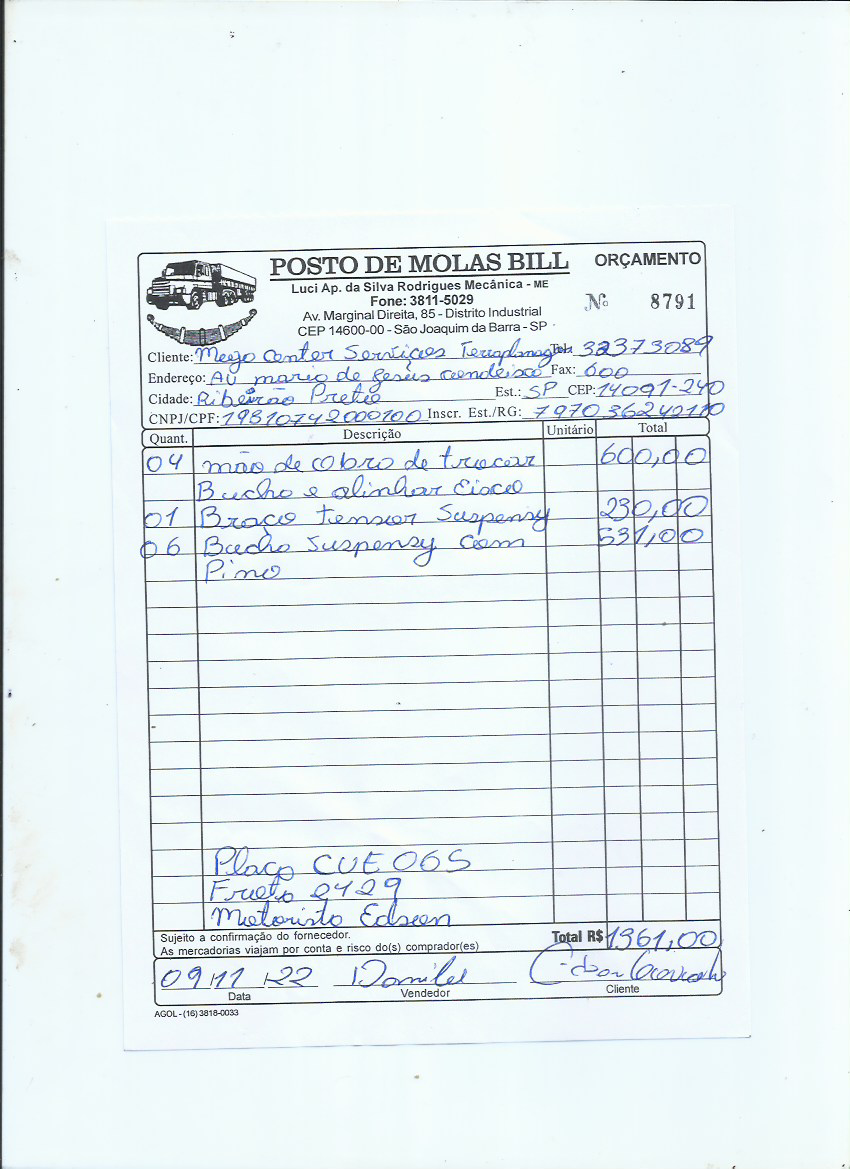 POSTO DE MOLAS BILL ORÇAMENTO
Luci Ap. da Silva Rodrigues Mecânica - ME
Fone: 3811-5029
Nº 8791
Av. Marginal Direita, 85 - Distrito Industrial
CEP 14600-00 - São Joaquim da Barra - SP
Cliente: Mego Center Serviçoes Terraplanag Tel.: 32373089
Endereço: AU mario de Jesus condeixo Fax: 600
Cidade: Ribeirão Preto Est.: SP CEP: 14091-240
CNPJ/CPF: 19810742000100 Inscr. Est./RG: 797036242110
Quant. Descrição Unitário Total
04 mão de obro de trocar 600,00
Bucho e alinhar Eixo
01 Braço tensor Suspensy 230,00
06 Bucho Suspensy com 531,00
Pino
Placo CUE 065
Froto 2429
Motoristo Edson
Sujeito a confirmação do fornecedor.
As mercadorias viajam por conta e risco do(s) comprador(es) Total R$ 1361,00
09 11 22
Data Vendedor Cliente
AGOL - (16) 3818-0033